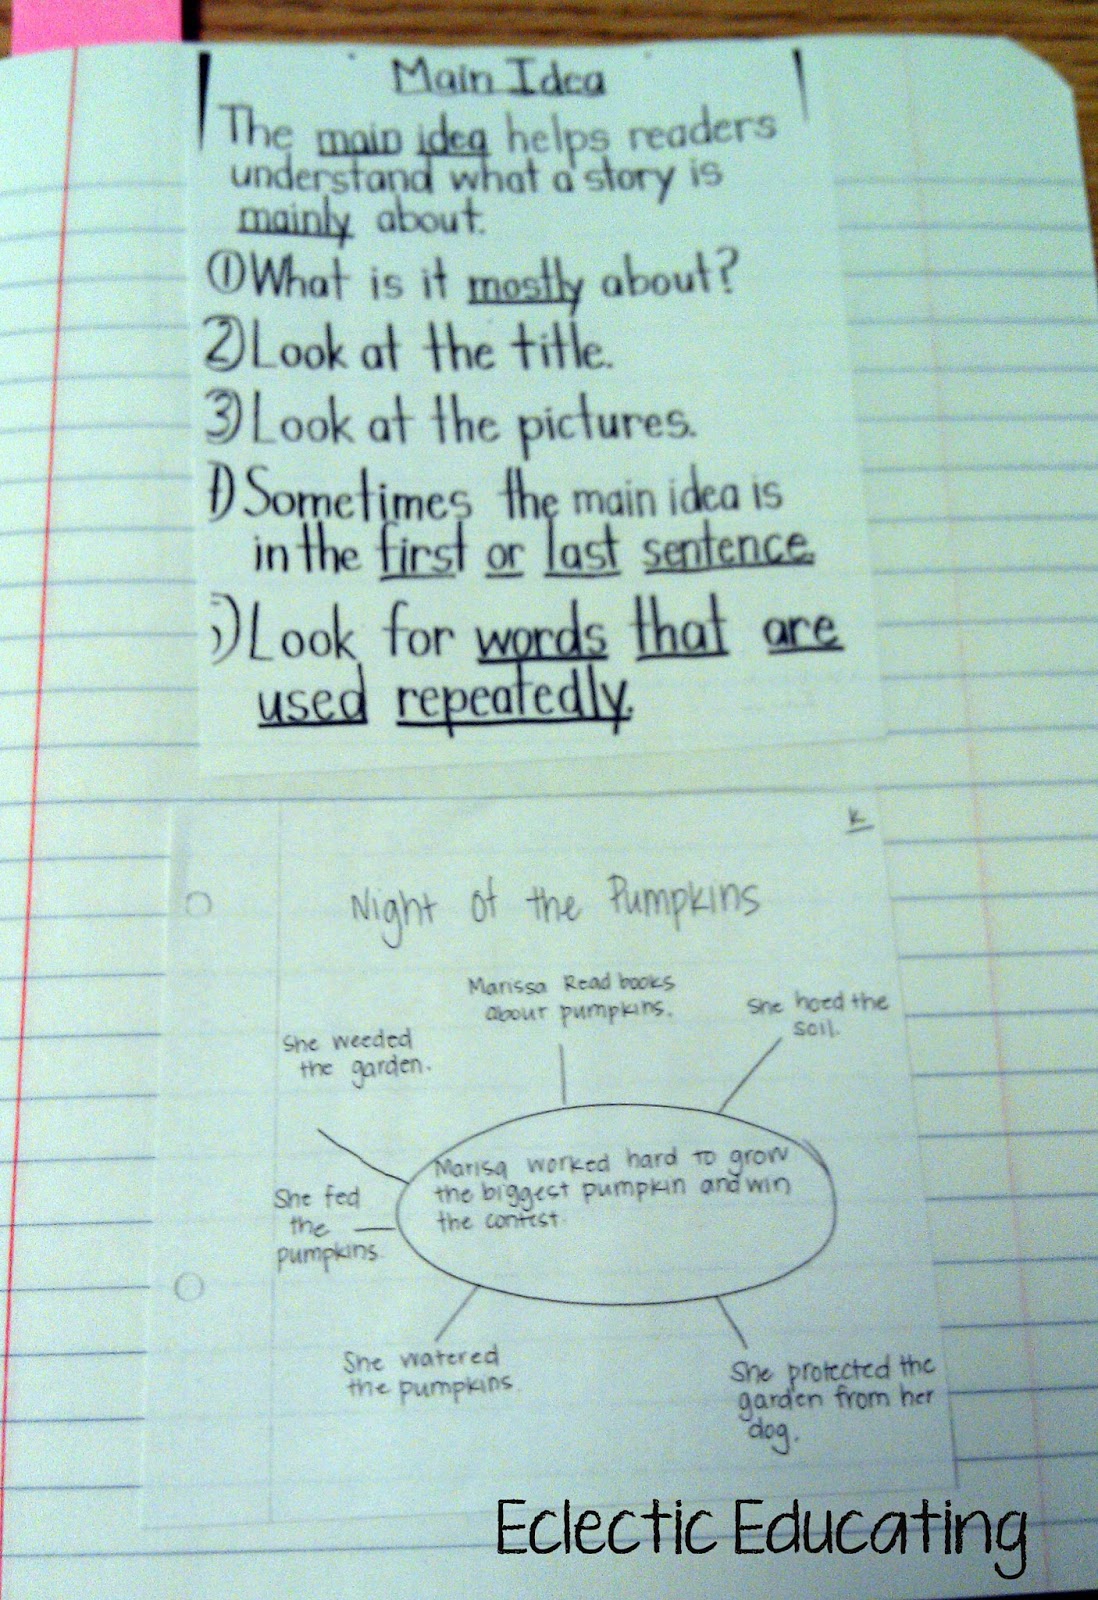 Main Idea
The main idea helps readers
understand what a story is
mainly about.
① What is it mostly about?
② Look at the title.
③ Look at the pictures.
) Sometimes the main idea is
in the first or last sentence.
) Look for words that are
used repeatedly.
K
Night of the Pumpkins
Marissa Read books
about pumpkins.
She hoed the
soil.
She weeded
the garden.
Marisa worked hard to grow
the biggest pumpkin and win
the contest.
She fed
the
pumpkins.
She watered
the pumpkins.
She protected the
garden from her
dog.
Eclectic Educating